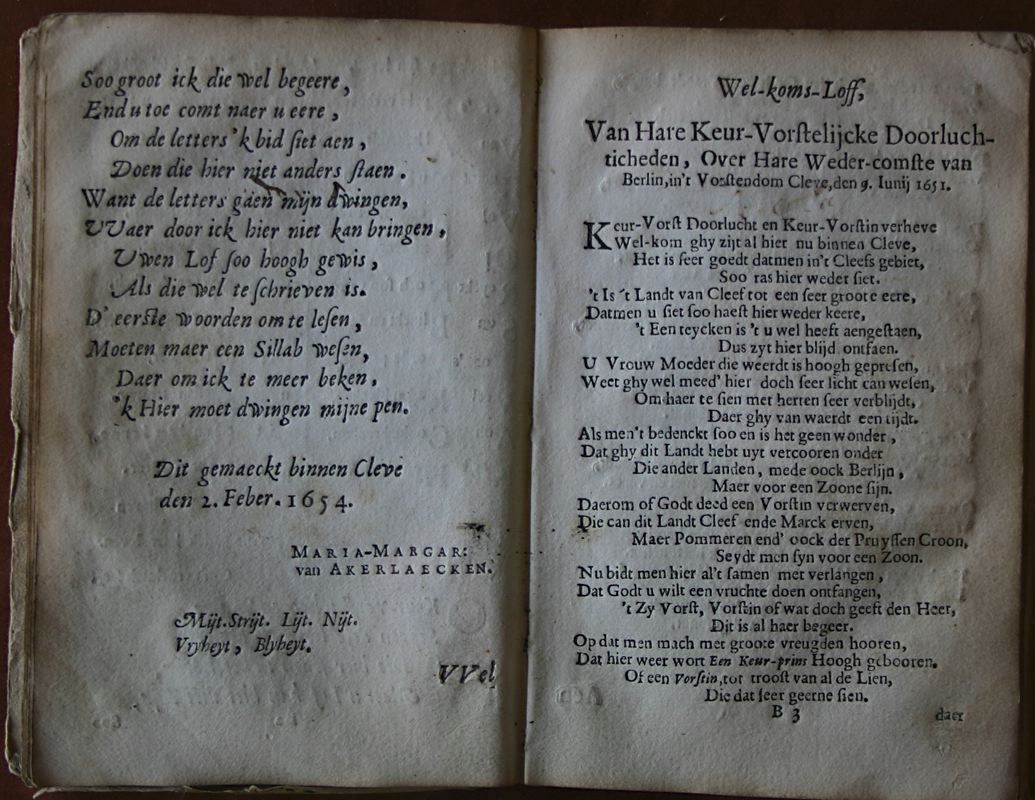 Soo groot ick die wel begeere,
End u toe comt naer u eere,
Om de letters 'k bid ſiet aen,
Doen die hier niet anders ſtaen.
Want de letters gaen mijn dwingen,
VVaer door ick hier niet kan bringen,
Uwen Lof ſoo hoogh gewis,
Als die wel te ſchrieven is.
D' eerſte woorden om te leſen,
Moeten maer een Sillab weſen,
Daer om ick te meer beken,
'k Hier moet dwingen mijne pen.
Dit gemaeckt binnen Cleve
den 2. Feber. 1654.
MARIA-MARGAR:
van AKERLAECKEN.
Mijt. Strijt. Lijt. Nijt.
Vryheyt, Blyheyt.
VVel
Wel-koms-Loff,
Van Hare Keur-Vorſtelijcke Doorluch-
ticheden, Over Hare Weder-comſte van
Berlin, in't Vorſtendom Cleve, den 9. Iunij 1651.
Keur-Vorſt Doorlucht en Keur-Vorſtin verheve
Wel-kom ghy zijt al hier nu binnen Cleve,
Het is ſeer goedt datmen in't Cleefs gebiet,
Soo ras hier weder ſiet.
't Is 't Landt van Cleef tot een ſeer groote eere,
Datmen u ſiet ſoo haeſt hier weder keere,
't Een teycken is 't u wel heeft aengeſtaen,
Dus zyt hier blijd ontfaen.
U Vrouw Moeder die weerdt is hoogh gepreſen,
Weet ghy wel meed' hier doch ſeer licht can weſen,
Om haer te ſien met herten ſeer verblijdt,
Daer ghy van waerdt een tijdt.
Als men't bedenckt ſoo en is het geen wonder,
Dat ghy dit Landt hebt uyt vercooren onder
Die ander Landen, mede oock Berlijn,
Maer voor een Zoone ſijn.
Daerom of Godt deed een Vorſtin verwerven,
Die can dit Landt Cleef ende Marck erven,
Maer Pommeren end' oock der Pruyſſen Croon,
Seydt men ſyn voor een Zoon.
Nu bidt men hier al't ſamen met verlangen,
Dat Godt u wilt een vruchte doen ontfangen,
't Zy Vorſt, Vorſtin of wat doch geeft den Heer,
Dit is al haer begeer.
Op dat men mach met groote vreugden hooren,
Dat hier weer wort Een Keur-prins Hoogh gebooren.
Of een Vorſtin, tot trooſt van al de Lien,
Die dat ſeer geerne ſien.
B 3
daer